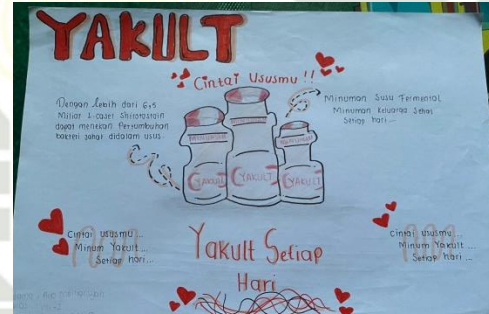 YAKULT
Cintai Ususmu !!
Dengan lebih dari 6,5
Miliar L.casei Shirotastrain
dapat menekan Pertumbuhan
bakteri jahat didalam usus.
Minuman Susu Fermentasi
Minuman Keluarga Sehat
Setiap hari...
YAKULT
YAKULT
YAKULT
Cintai ususmu...
Minum Yakult...
Setiap hari...
Yakult Setiap
Hari
Cintai ususmu...
Minum Yakult...
Setiap hari...